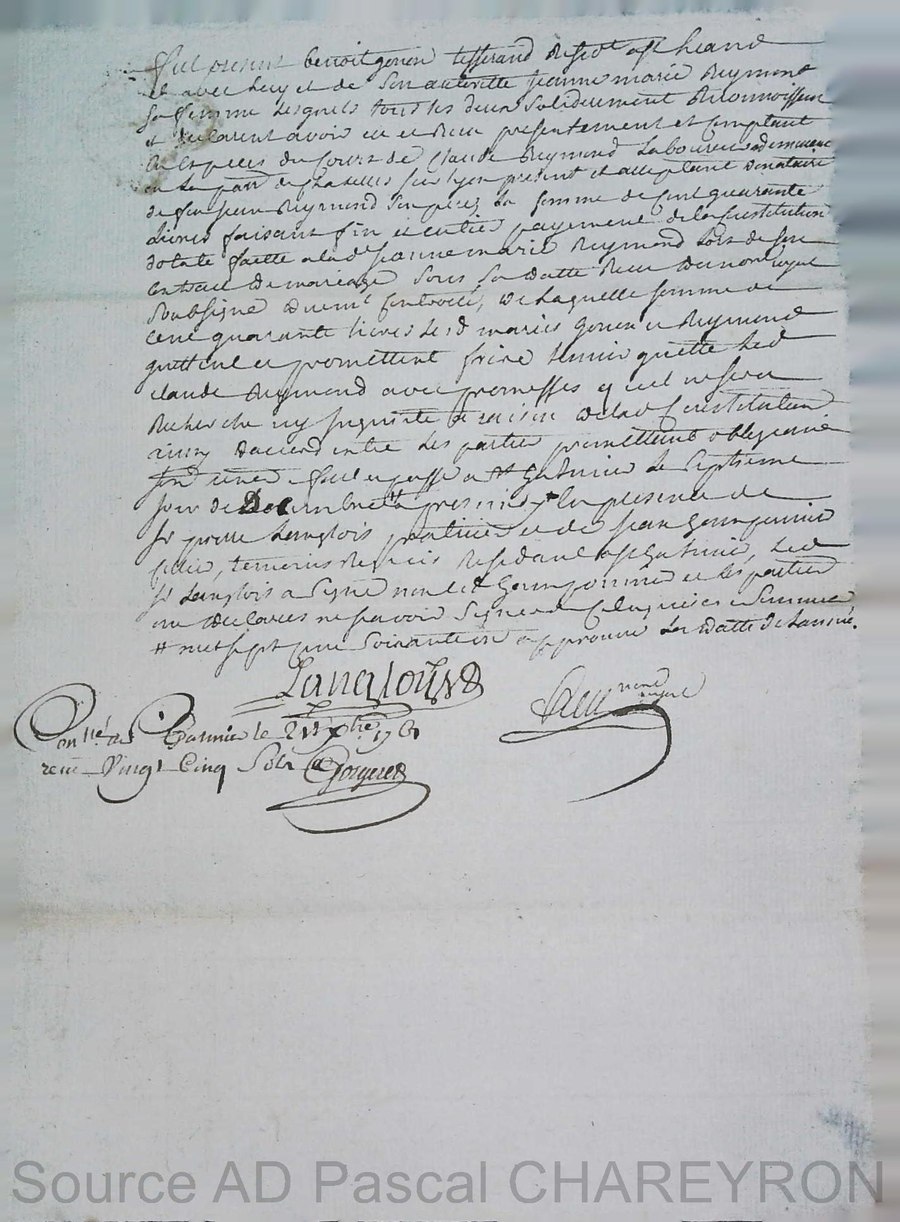 fut present benoit gonon tisserand
et avec luy et de son authorité jeanne marie Reymond
sa femme lesquels tous les deux solidairement Reconnoissent
et declarent avoir eu et Recu presentement et comptant
en especes du cours de claude Reymond laboureur demeurant
en la parr de chazelles sur lyon present et acceptant donataire
de feu jean Reymond son pere, la somme de cent quarante
livres faisant fin et entier payement de la Constitution
dotale faitte a lad jeanne marie Reymond lors de son
contract de mariage sous sa datte Recu du no.re royal
soubsigné duem.t controllé, de laquelle somme de
cent quarante livres les d mariés gonon et Reymond
quittent et promettent faire tenir quitte led
claude Reymond avec promesses qu'il n'en sera
Recherché ny inquiété a raison de lad Constitution
ainsy daccord entre les parties promettant obligeant
fait et passé a st Galmier le septieme
jour de Decembre en presence de
sr pierre Langlois praticien et de jean
temoins Requis Residant a st Galmier, led
sr Langlois a signé non led et les parties
ont declarés ne scavoir signer de ce enquises et sommes
# mil sept cent soixante un approuvé la datte de l'année.
Langlois
Con.lé a St Galmier le 1761
recu Vingt Cinq Sols